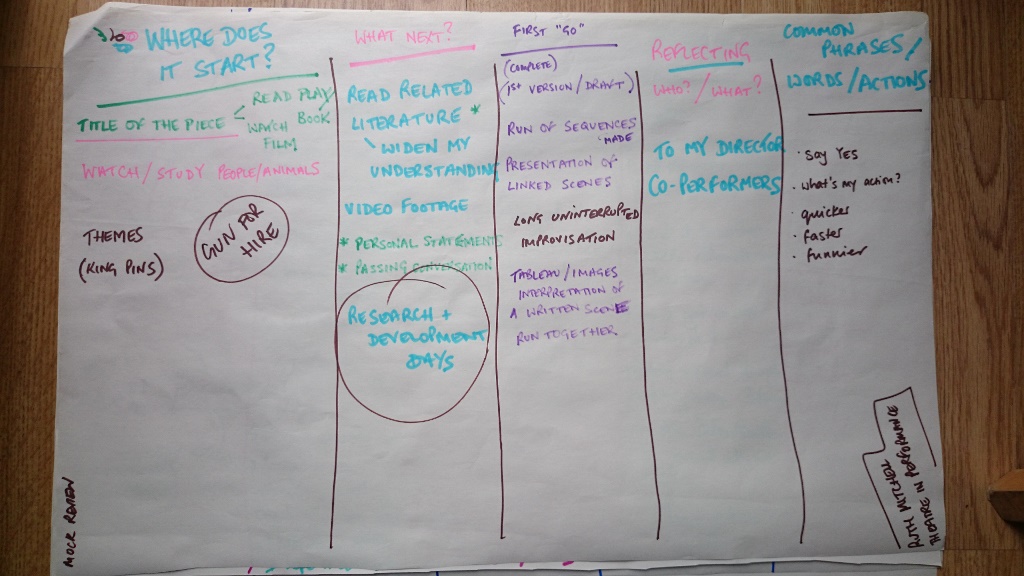 WHERE DOES
IT START?
TITLE OF THE PIECE
READ PLAY/
BOOK
WATCH
FILM
WATCH/STUDY PEOPLE/ANIMALS
THEMES
(KING PINS)
GUN FOR
HIRE
MOCK REVIEW
WHAT NEXT?
READ RELATED
LITERATURE *
WIDEN MY
UNDERSTANDING
VIDEO FOOTAGE
* PERSONAL STATEMENTS
* PASSING CONVERSATION
RESEARCH +
DEVELOPMENT
DAYS
FIRST "GO"
(COMPLETE)
(1st VERSION/DRAFT)
RUN OF SEQUENCES
MADE
PRESENTATION OF
LINKED SCENES
LONG UNINTERRUPTED
IMPROVISATION
TABLEAU/IMAGES
INTERPRETATION OF
A WRITTEN SCENE
RUN TOGETHER
REFLECTING
WHO?/WHAT?
TO MY DIRECTOR
CO-PERFORMERS
COMMON
PHRASES/
WORDS/ACTIONS.
• say Yes
• what's my action?
• quicker
• faster
• funnier
RUTH MITCHELL
THEATRE IN PERFORMANCE